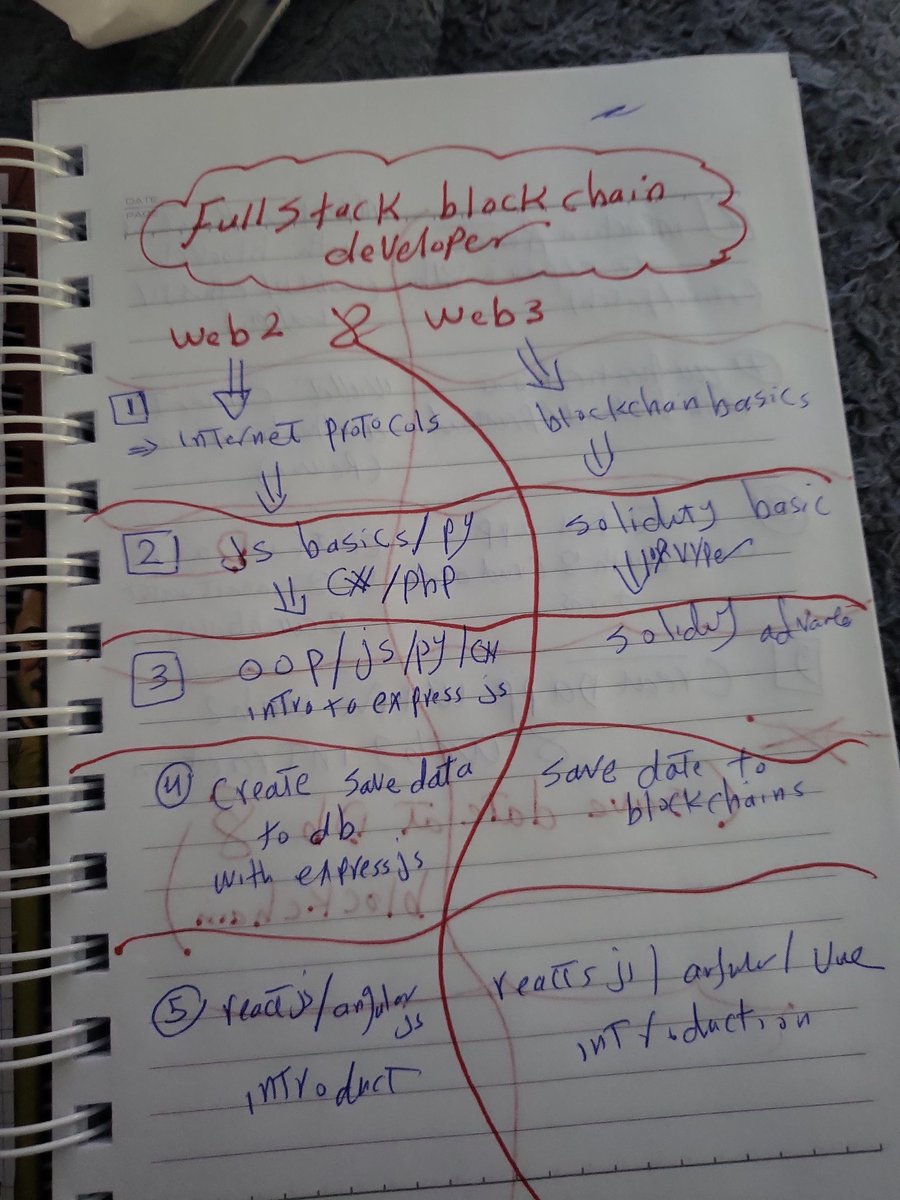 Full Stack blockchain
developer
web2 & web3
1
⇒ internet protocols
blockchanbasics
2 Js basics/py
C#/php
solidity basic
OR vyper
3 OOP/js/py/C#
intro to express js
solidity
4 Create save data
to db
with expressjs
save date to
blockchains
5 reactjs/angular
js
introduct
reactsjs/angular/vue
introduction